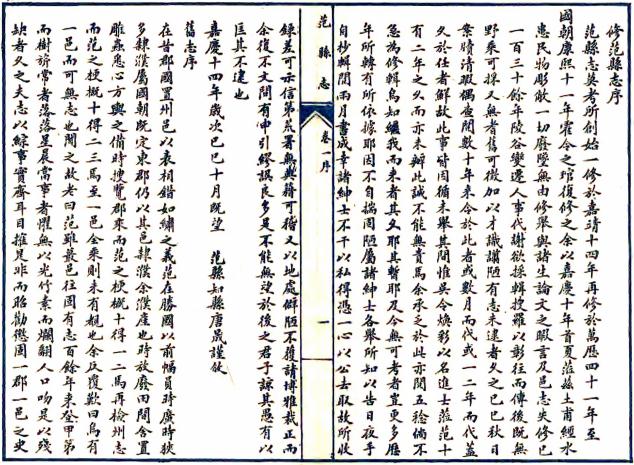 修范縣志序
范縣志莫考所創始一修於嘉靖十四年再修於萬歷四十一年至
國朝康熙十一年霍令之琯復修之余以嘉慶十年首夏蒞茲土甫經水
患民物彫敝一切廢墜無由修舉與諸生論文之暇言及邑志失修已
一百三十餘年陵谷變遷人事代謝欲採輯搜羅以彰往而傳後既無
野乘可採又無耆舊可徵加以才識譾陋有志未逮者久之已巳秋日
案牘清暇偶查閱數十年來令於此者或數月而代或一二年而代蓋
久於任者鮮故此事皆因循未舉其間惟吳令煥彩以名進士蒞范十
有二年之久而亦未辦此誠不能無責焉余承乏於此亦閱五稔倘不
急為修輯烏知繼我而來者其久耶其暫耶及今無可考者豈更多歷
年所轉有所依據耶因不自揣固陋屬諸紳士各舉所知以告日夜手
自抄輯閱兩月書成幸諸紳士不干以私得憑一心以公去取故所收
范縣志 卷一序 一
錄差可示信第荒署無典籍可稽又以地處僻陋不獲請博雅裁正而
余復不文間有申引繆誤良多是不能無望於後之君子諒其愚有以
匡其不逮也
嘉慶十四年歲次己巳十月既望 范縣知縣唐晟謹敘
舊志序
在昔郡國置州邑以表相錯如繡之義范在勝國以前幅員時廣時狹
多隸濮屬國朝既定東郡仍以其邑隸濮余濮產也時放廢田間舍置
雕蟲悉心方輿之備時搜覽郡乘而范之梗概十得一二焉再檢州志
而范之梗概十得二三焉至一邑全乘則未有覩也余反覆歎曰烏有
一邑而可無志也閱之故老曰范雖蕞邑往固有志百餘年來登甲第
而樹旂常者落落星晨當事者懼無以光竹素而爛翻人口吻是以殘
缺者久之夫志以綜事實齊耳目摧是非而昭勸懲固一郡一邑之史